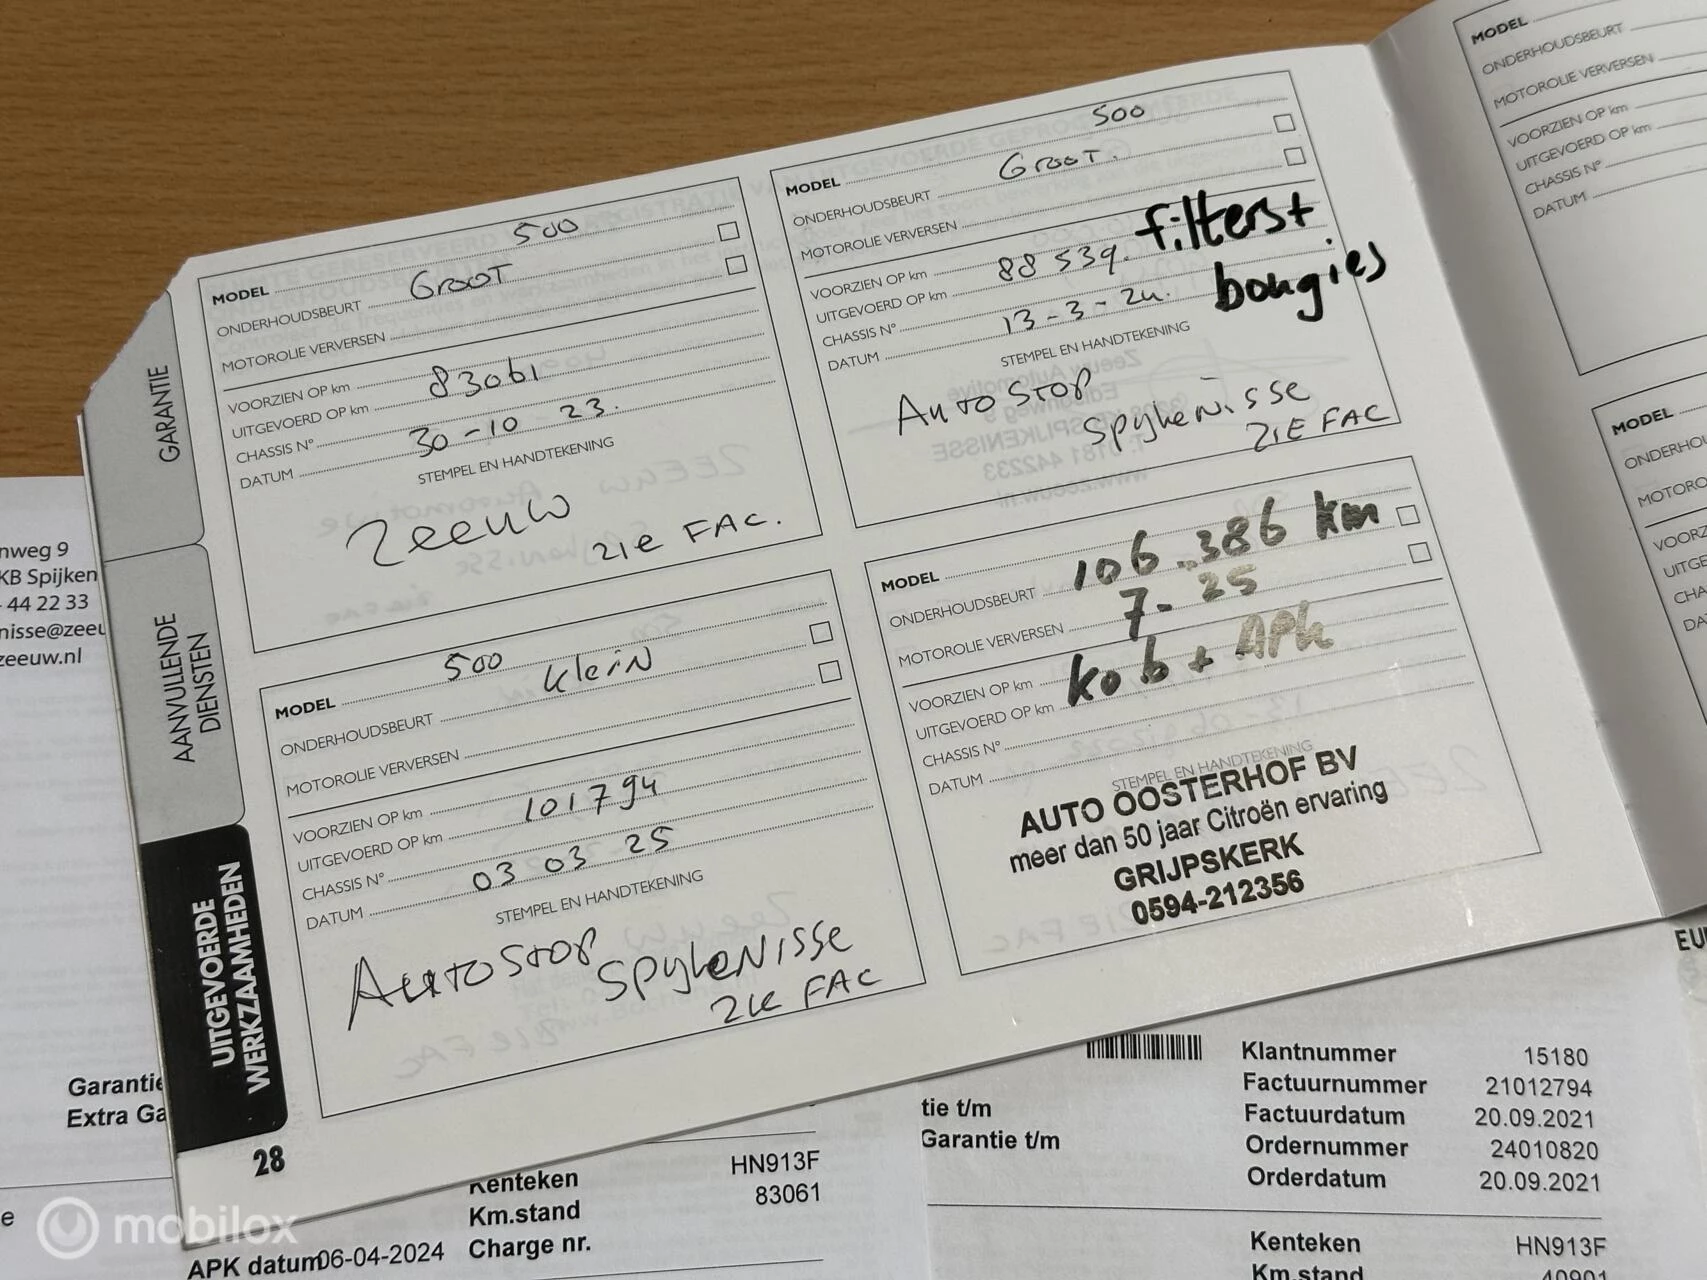 MODEL 500
ONDERHOUDSBEURT GROOT
MOTOROLIE VERVERSEN
VOORZIEN OP km
UITGEVOERD OP km 83061
CHASSIS N°
DATUM 30-10-23.
STEMPEL EN HANDTEKENING
Zeeuw
zie FAC.
MODEL 500
ONDERHOUDSBEURT GROOT.
MOTOROLIE VERVERSEN
filterst
VOORZIEN OP km
UITGEVOERD OP km 88539.
bougies
CHASSIS N°
DATUM 13-3-24.
STEMPEL EN HANDTEKENING
AUTOSTOP
Spykenisse
ZIE FAC
MODEL 500
ONDERHOUDSBEURT klein
MOTOROLIE VERVERSEN
VOORZIEN OP km
UITGEVOERD OP km 101794
CHASSIS N°
DATUM 03 03 25
STEMPEL EN HANDTEKENING
AUTOSTOP
SPYKENISSE
ZIE FAC
MODEL
106.386 km
ONDERHOUDSBEURT
7-25
MOTOROLIE VERVERSEN
kob + APk
VOORZIEN OP km
UITGEVOERD OP km
CHASSIS N°
DATUM
STEMPEL EN HANDTEKENING
AUTO OOSTERHOF BV
meer dan 50 jaar Citroën ervaring
GRIJPSKERK
0594-212356
GARANTIE
AANVULLENDE
DIENSTEN
UITGEVOERDE
WERKZAAMHEDEN
28
MODEL
ONDERHOUDSBEURT
MOTOROLIE VERVERSEN
VOORZIEN OP km
UITGEVOERD OP km
CHASSIS N°
DATUM
MODEL
ONDERHOUD
MOTORO
VOORZ
UITGE
CHA
DA
nweg 9
KB Spijken
44 22 33
nisse@zeeu
zeeuw.nl
Garantie
Extra Ga
Kenteken HN913F
Km.stand 83061
Charge nr.
APK datum 06-04-2024
tie t/m
Garantie t/m
Klantnummer 15180
Factuurnummer 21012794
Factuurdatum 20.09.2021
Ordernummer 24010820
Orderdatum 20.09.2021
Kenteken HN913F
Km.stand 40901
EU
e
mobilox